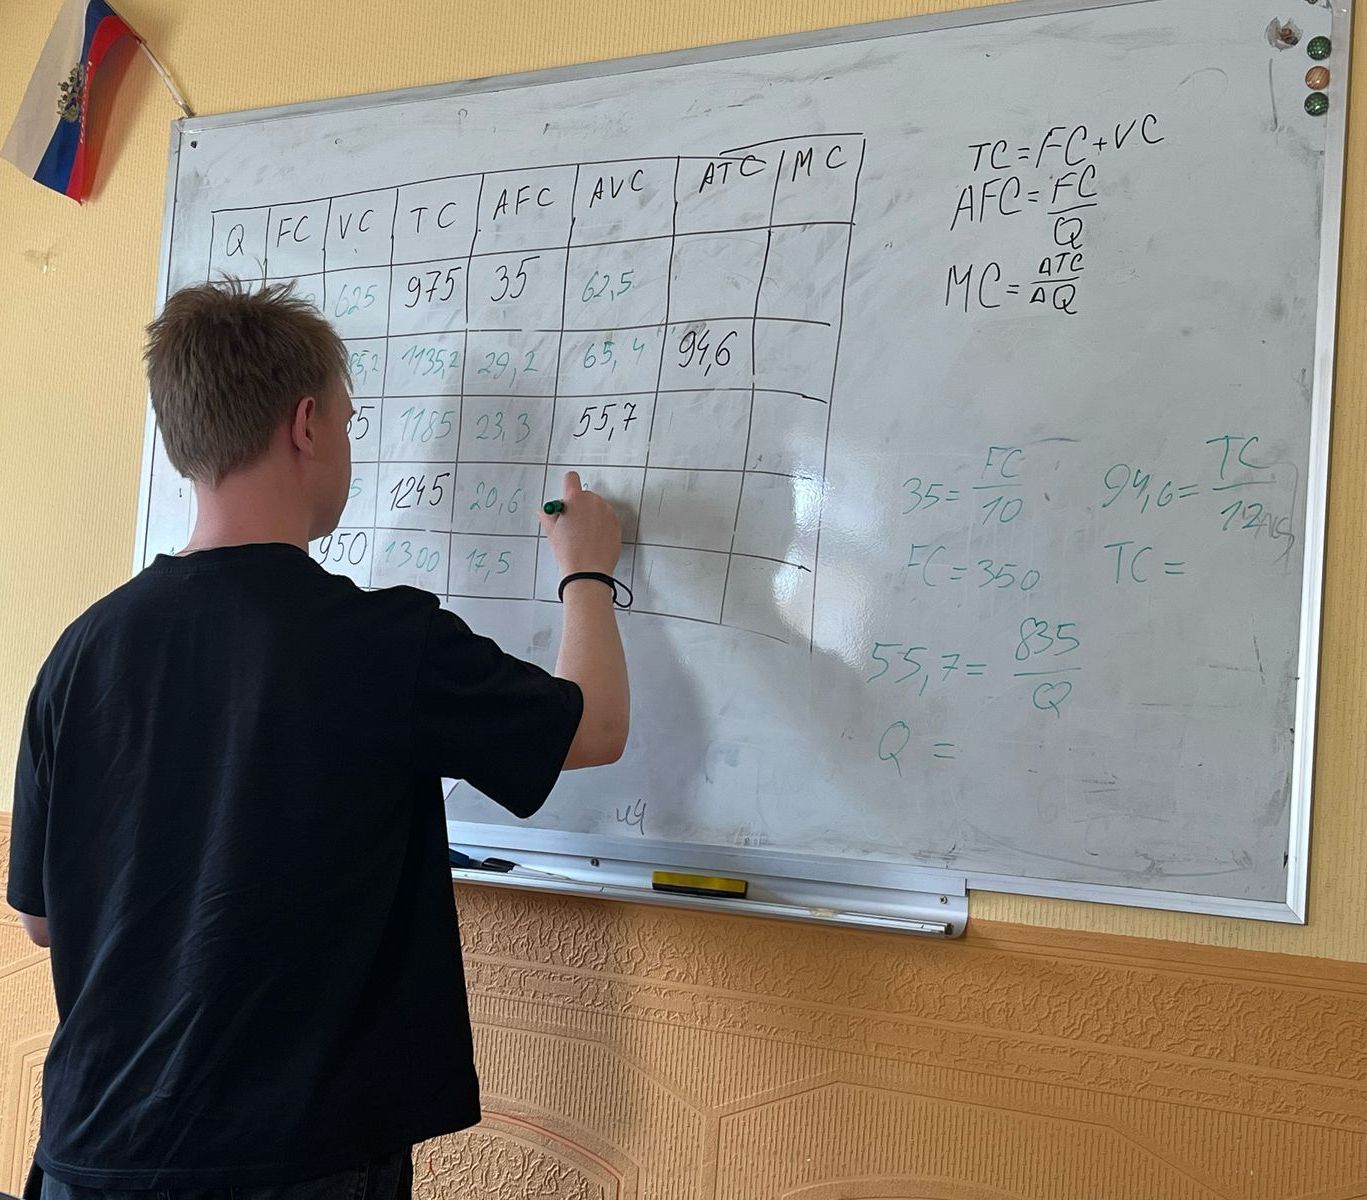 Q FC VC TC AFC AVC ATC MC
625 975 35 62,5
85,2 1135,2 29,2 65,4 94,6
35 1185 23,3 55,7
5 1245 20,6
950 1300 17,5
TC=FC+VC
AFC=FC/Q
MC=ΔTC/ΔQ
35=FC/10
FC=350
94,6=TC/12
TC=
55,7=835/Q
Q=